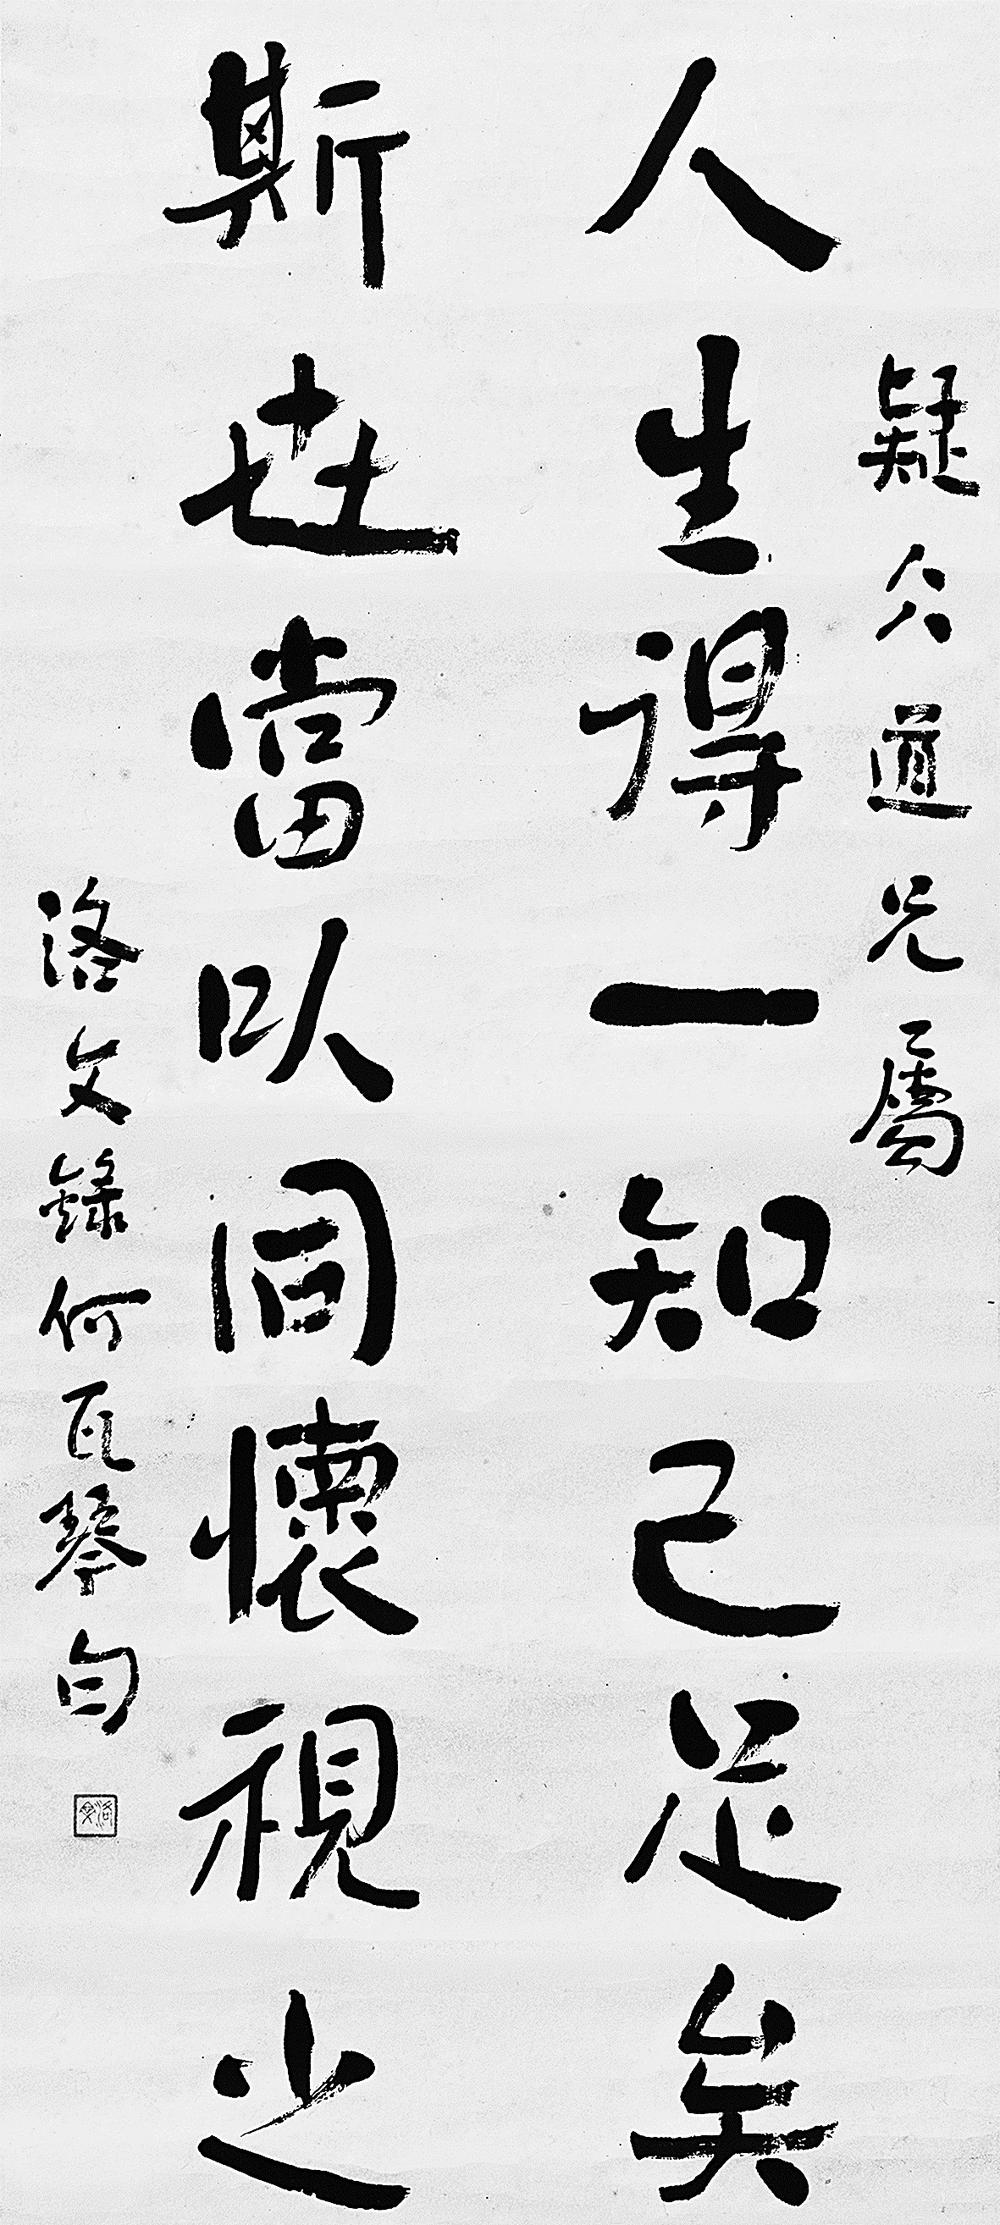 疑仌道兄屬
人生得一知己足矣
斯世當以同懷視之
洛文錄何瓦琴句
洛文